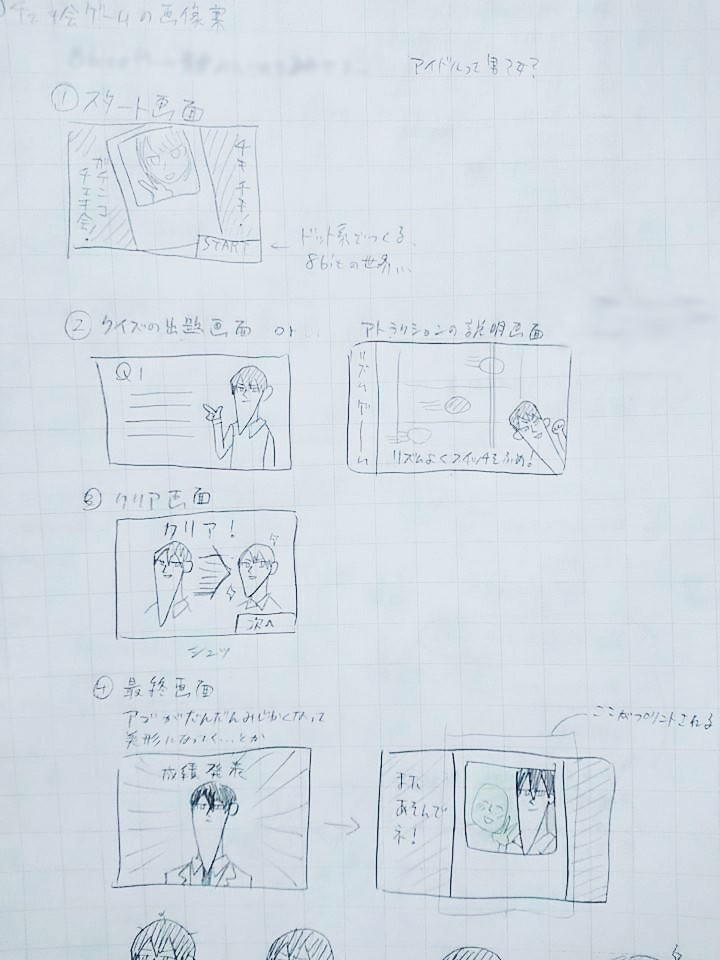 チェキ会ゲームの画像案
アイドルって男?女?
① スタート画面
チキチキ!
ガチンコ
チェキ会!
START
← ドット系でつくる。
8bitの世界…
② クイズの出題画面 or…
アトラクションの説明画面
Q1
リズムゲーム
リズムよくスイッチをふめ。
③ クリア画面
クリア!
次へ
シュッ
④ 最終画面
アゴがだんだんみじかくなって
美形になってく…とか
ここがプリントされる
成績発表
また
あそんで
ネ!